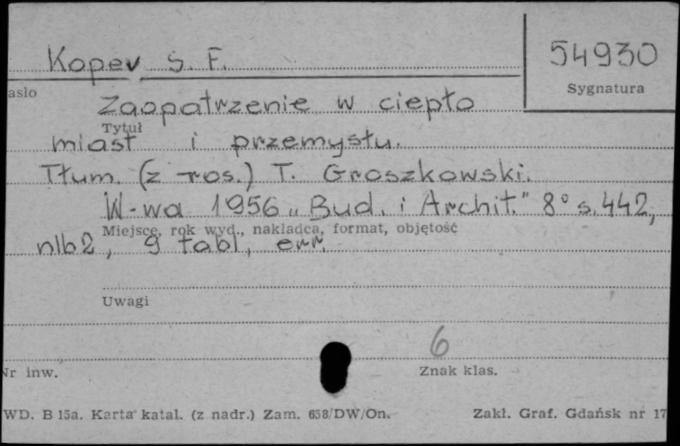 Kopev S. F.
54930
asło
Sygnatura
Zaopatrzenie w ciepło
Tytuł
miast i przemysłu.
Tłum. (z ros.) T. Groszkowski.
W-wa 1956 „Bud. i Archit." 8° s. 442,
Miejsce, rok wyd., nakładca, format, objętość
nlb2, 9 tabl, err.
Uwagi
6
Nr inw.
Znak klas.
WD. B 15a. Karta katal. (z nadr.) Zam. 658/DW/On.
Zakł. Graf. Gdańsk nr 17